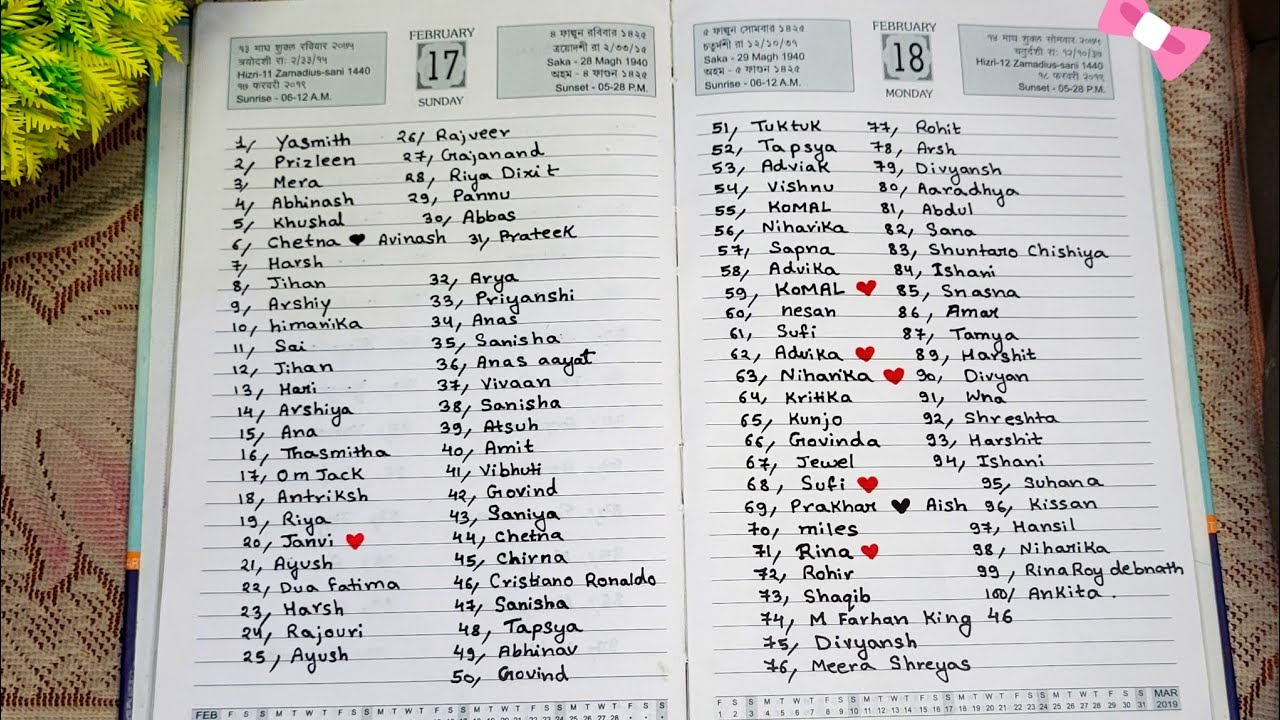 १३ माघ शुक्ल रविवार २०७५
त्रयोदशी रा: २/३३/१५
Hizri-11 Zamadius-sani 1440
१७ फरवरी २०१९
Sunrise - 06-12 A.M.
FEBRUARY
17
SUNDAY
৪ ফাল্গুন রবিবার ১৪২৫
ত্রয়োদশী রা ২/৩৩/১৫
Saka - 28 Magh 1940
অহম - ৪ ফাগুন ১৪২৫
Sunset - 05-28 P.M.
1, Yasmith 26, Rajveer
2, Prizleen 27, Gajanand
3, Mera 28, Riya Dixit
4, Abhinash 29, Pannu
5, Khushal 30, Abbas
6, Chetna 🖤 Avinash 31, Prateek
7, Harsh
8, Jihan 32, Arya
9, Arshiy 33, Priyanshi
10, himanika 34, Anas
11, Sai 35, Sanisha
12, Jihan 36, Anas aayat
13, Hari 37, Vivaan
14, Arshiya 38, Sanisha
15, Ana 39, Atsuh
16, Thasmitha 40, Amit
17, Om Jack 41, Vibhuti
18, Antriksh 42, Govind
19, Riya 43, Saniya
20, Janvi ❤ 44, Chetna
21, Ayush 45, Chirna
22, Dua fatima 46, Cristiano Ronaldo
23, Harsh 47, Sanisha
24, Rajouri 48, Tapsya
25, Ayush 49, Abhinav
50, Govind
FEB F S S M T W T F S S M T W T F S S M
৫ ফাল্গুন সোমবার ১৪২৫
চতুর্দশী রা ১২/১০/৩৭
Saka - 29 Magh 1940
অহম - ৫ ফাগুন ১৪২৫
Sunrise - 06-12 A.M.
FEBRUARY
18
MONDAY
१४ माघ शुक्ल सोमवार २०७५
चतुर्दशी रा: १२/१०/३७
Hizri-12 Zamadius-sani 1440
१८ फरवरी २०१९
Sunset - 05-28 P.M.
51, Tuktuk 77, Rohit
52, Tapsya 78, Arsh
53, Adviak 79, Divyansh
54, Vishnu 80, Aaradhya
55, KOMAL 81, Abdul
56, Niharika 82, Sana
57, Sapna 83, Shuntaro Chishiya
58, Advika 84, Ishani
59, KOMAL ❤ 85, Snasna
60, nesan 86, Amar
61, Sufi 87, Tamya
62, Advika ❤ 89, Harshit
63, Niharika ❤ 90, Divyan
64, Kritika 91, Wna
65, Kunjo 92, Shreshta
66, Govinda 93, Harshit
67, Jewel 94, Ishani
68, Sufi ❤ 95, Suhana
69, Prakhar 🖤 Aish 96, Kissan
70, miles 97, Hansil
71, Rina ❤ 98, Niharika
72, Rohir 99, Rina Roy debnath
73, Shaqib 100, Ankita .
74, M Farhan King 46
75, Divyansh
76, Meera Shreyas
F S S M T W T F S S M T W T F S S M T W T F S S M T W T F S S MAR
1 2 3 4 5 6 7 8 9 10 11 12 13 14 15 16 17 18 19 20 21 22 23 24 25 26 27 28 29 30 31 2019